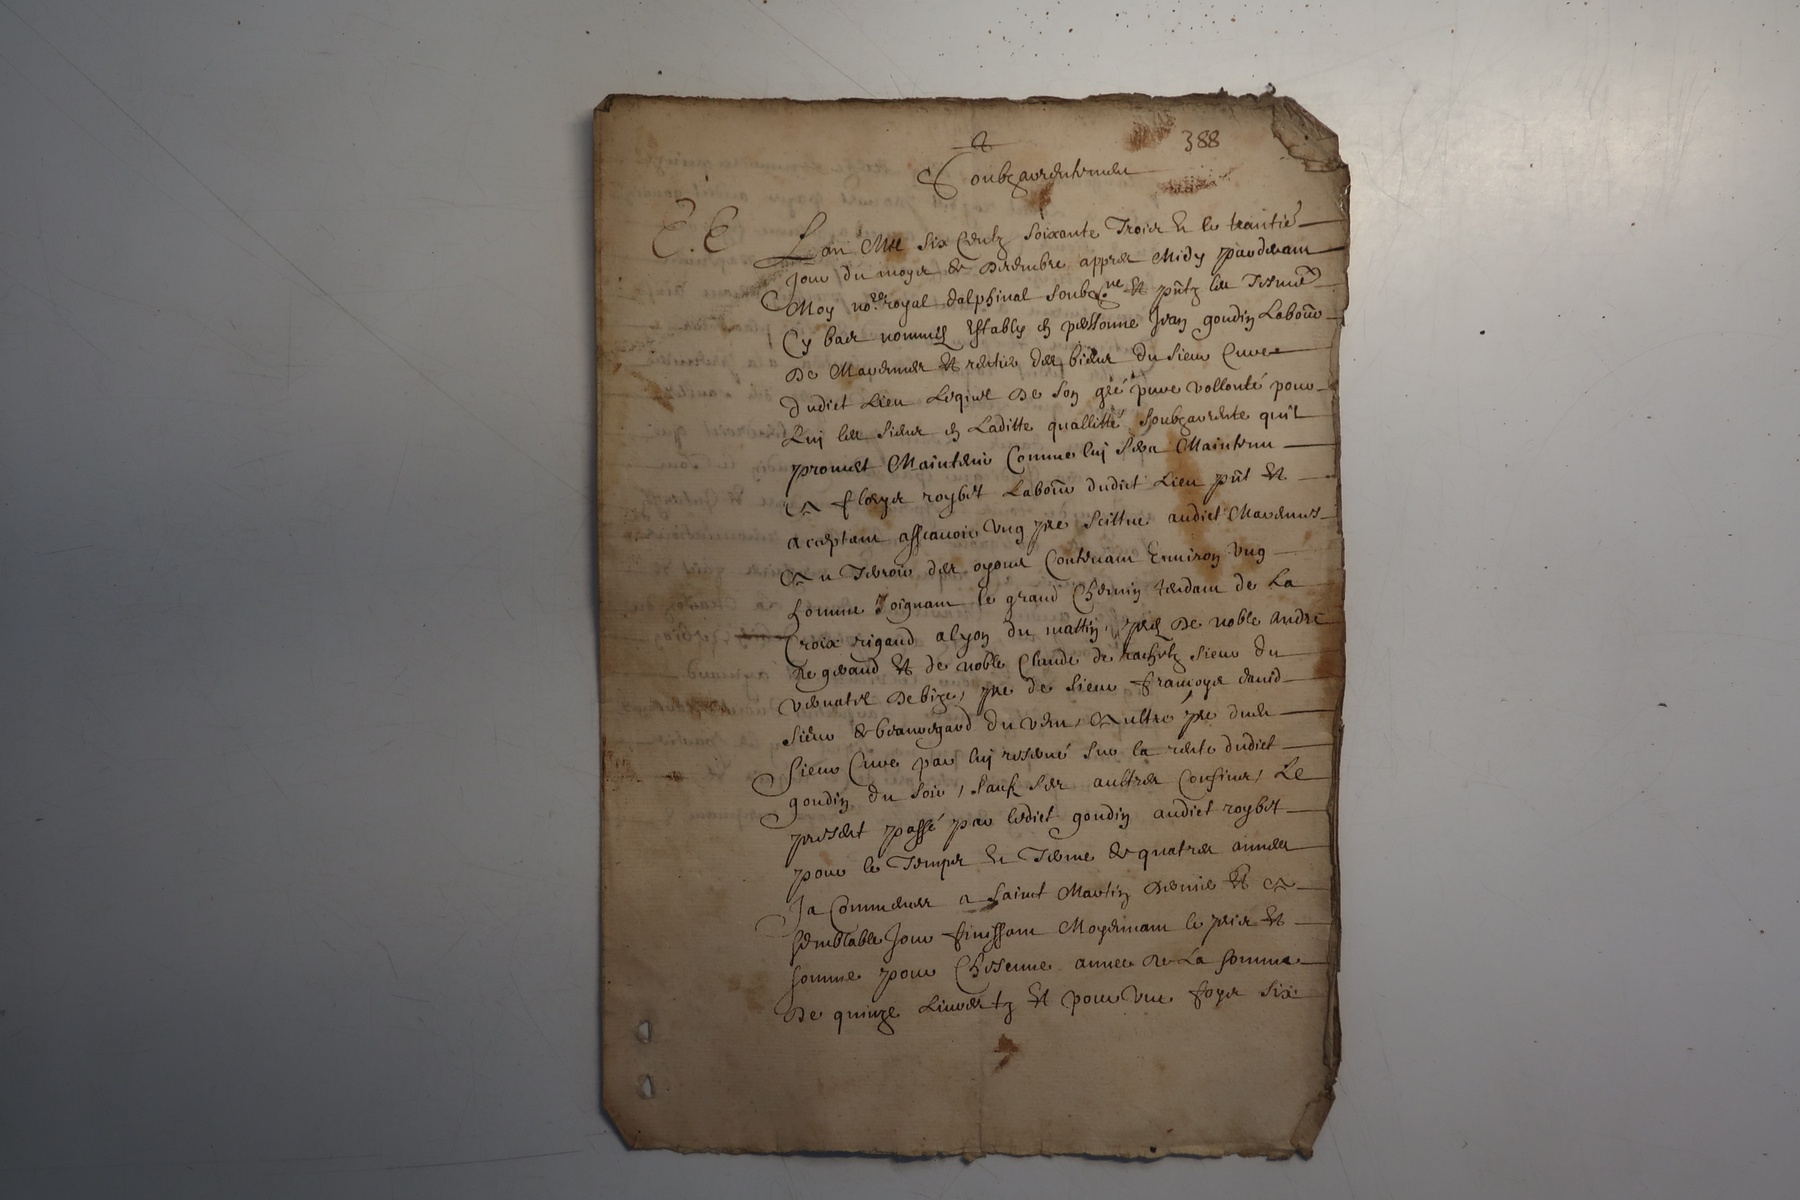 388
Soubzarentement
E. E
L'an Mil Six Centz Soixante Trois & le trantie
jour du moys de Decembre appres Midy pardevant
Moy no.re royal dalphinal soubz.ne et pntz les Tesmo
Cy bas nommes Estably en personne Jean goudin Labour
De Marennes et rentier des biens du sieur Cuve
dudict Lieu Lequel De Son gré pure vollonté pour
Luy les siens en Laditte quallitté Soubzarente quil
promet Maintenir Comme luy sera Maintenu
A florys roybet Labour dudict Lieu pnt et
acceptant assavoir Ung pre scittue audict Marennes
Au Terroir des Contenant Environ Ung
homme Joignant le grand Chemin tendant de La
Croix rigaud a lyon du mattin, pres De noble André
De giraud et de noble Claude de sieur du
De bize, pre de sieur françoys david
sieur de beauregard du vent, Aultre pre dudi
sieur Cuve par luy reservé sur la rente dudict
goudin du soir, sauf ses aultres Confins, Le
present passé par ledict goudin audict roybet
pour le Temps & Terme de quatre annees
Ja Commencee a Sainct Martin Dernier et A
semblable Jour finissant Moyennant le prix et
somme pour Chescune annee De La somme
De quinze Livres tz et pour une foys six